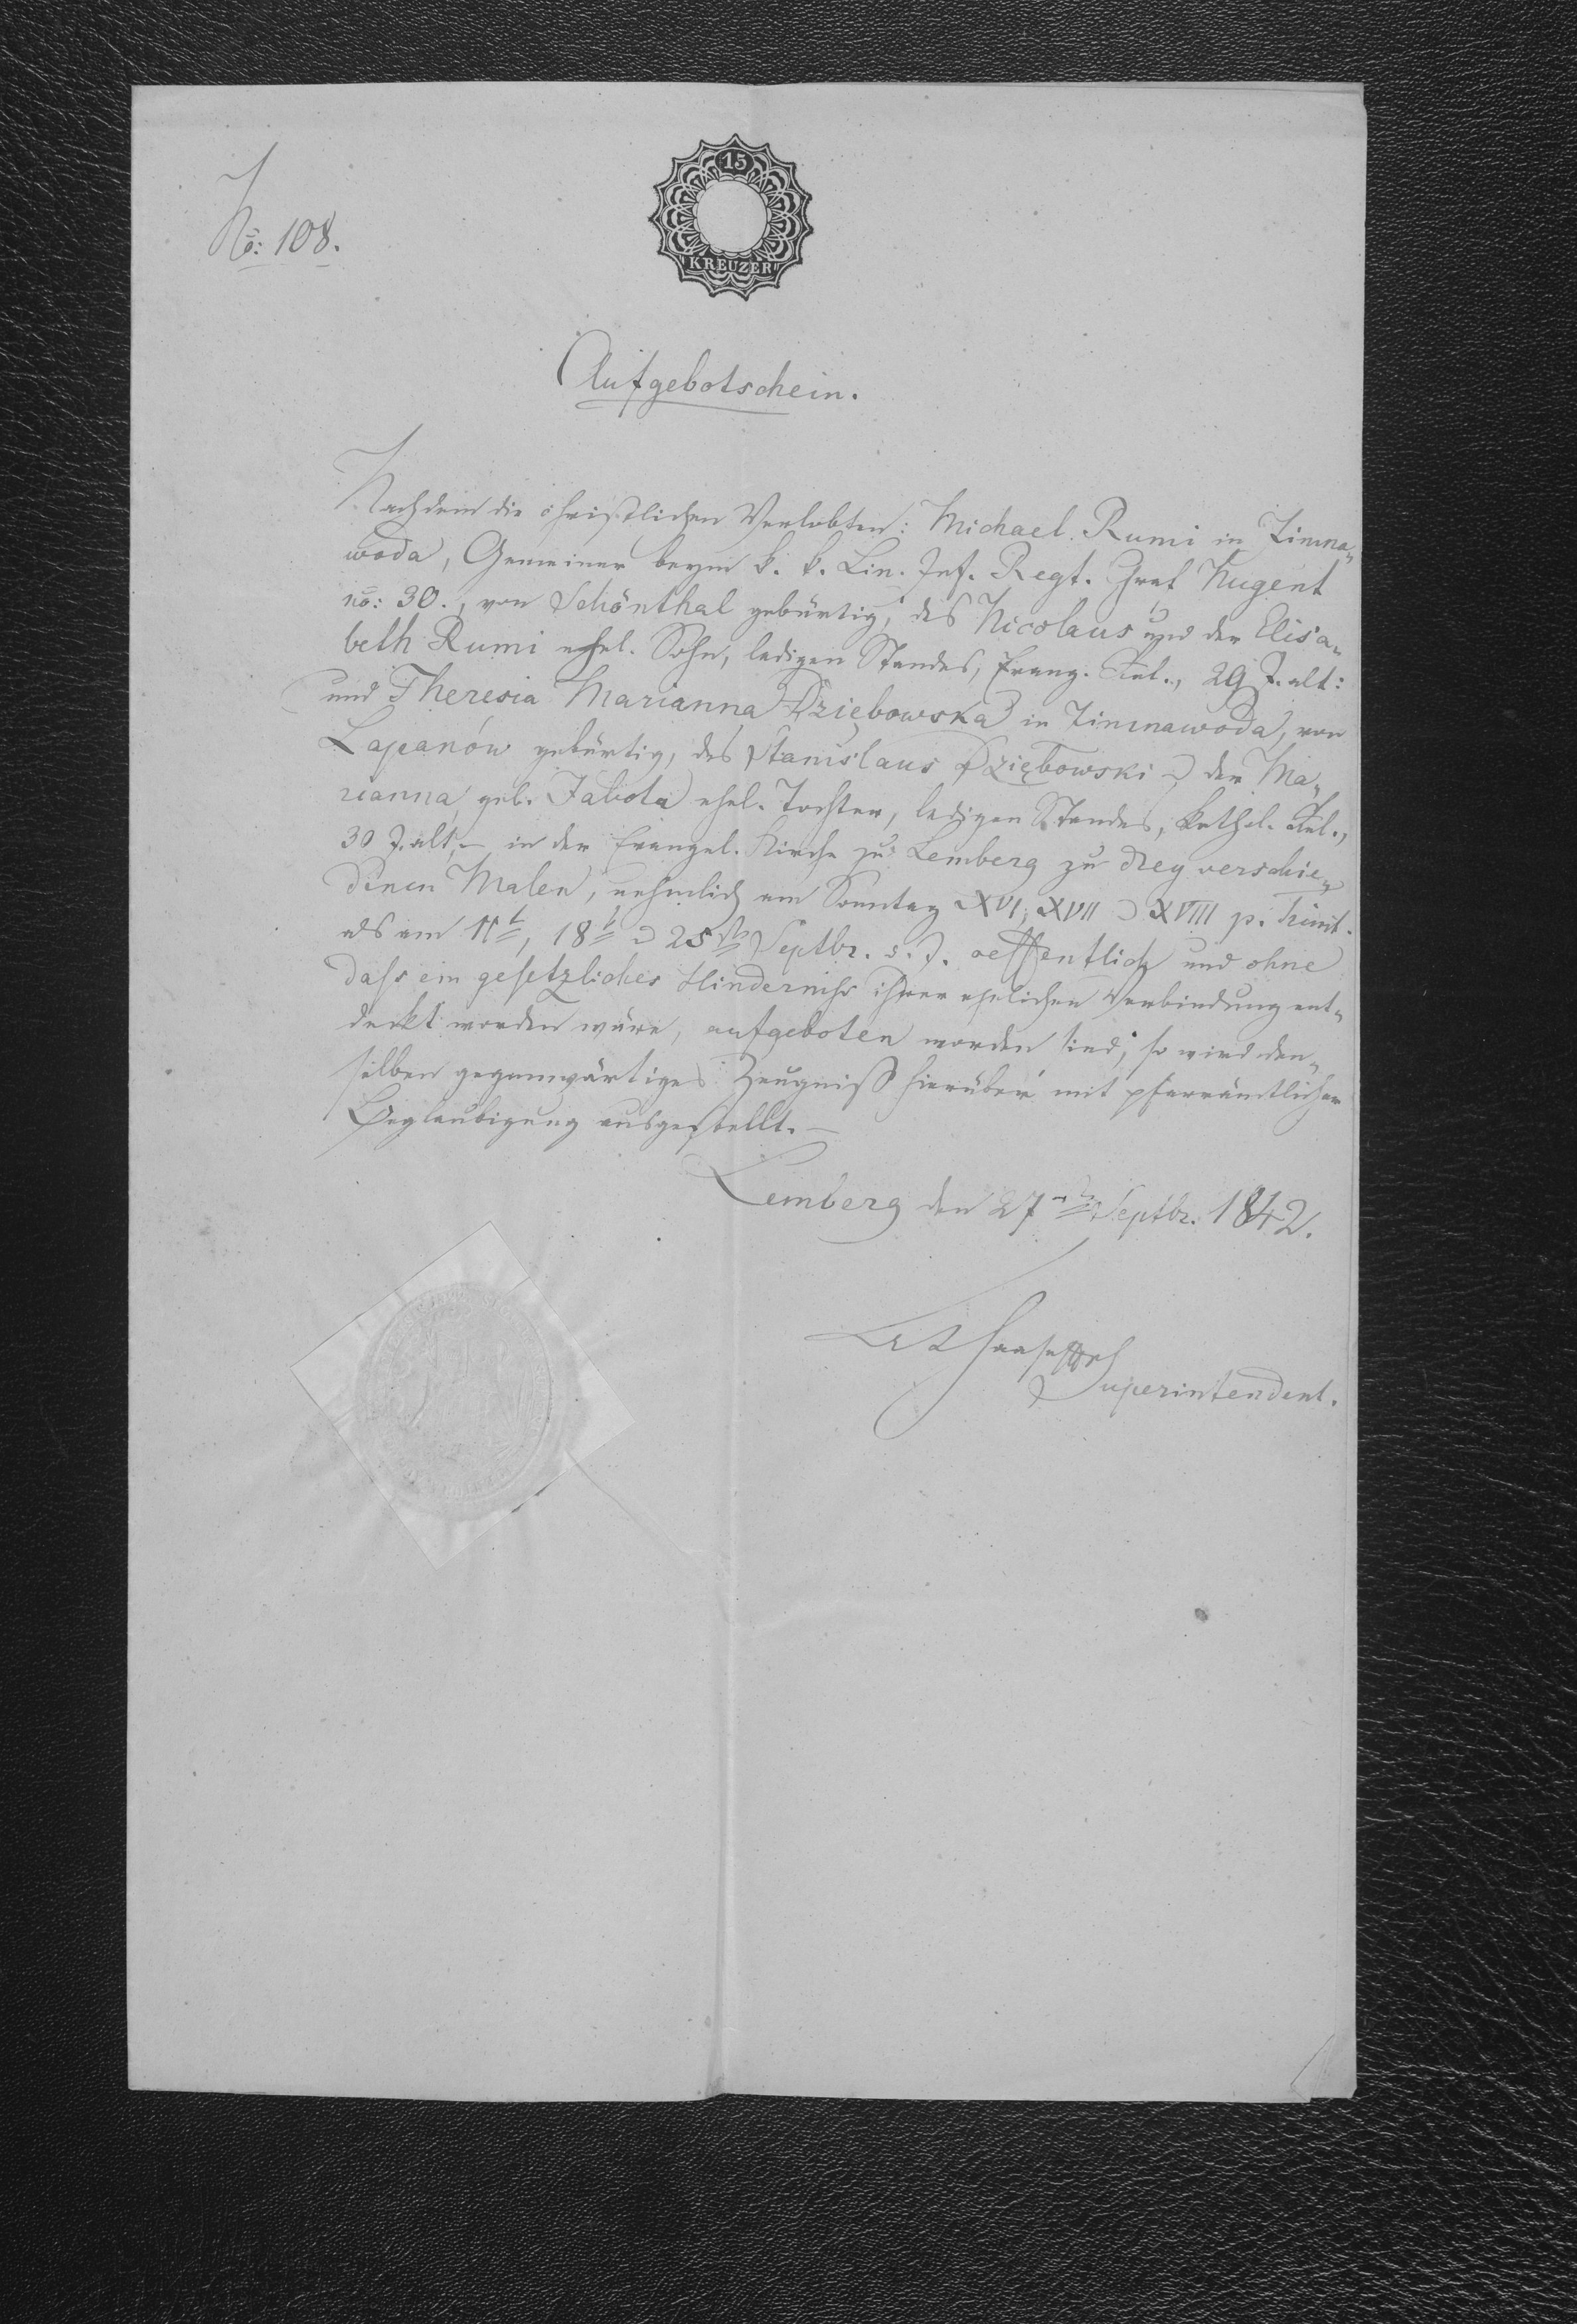 15
KREUZER
No: 108.
Aufgebotschein.
Nachdem die christlichen Verlobten: Michael Rumi in Zimna„
woda, Gemeiner beym k. k. Lin. Inf. Regt. Graf Nugent
no: 30., von Schönthal gebürtig, des Nicolaus und der Elisa„
beth Rumi ehel. Sohn, ledigen Standes, Evang. Rel., 29 J. alt:
und Theresia Marianna Dziębowska in Zimnawoda, von
Lapanów gebürtig, des Stanislaus Dziębowski & der Ma„
rianna, geb. Jabola ehel. Tochter, ledigen Standes, kathol. Rel.,
30 J. alt, – in der Evangel. Kirche zu Lemberg zu drey verschie„
denen Malen, nehmlich am Sonntag XVI, XVII & XVIII p. Trinit.
als am 11t, 18t & 25ten Septbr. d. J. oeffentlich und ohne
dass ein gesetzliches Hinderniss ihrer ehelichen Verbindung ent„
deckt worden wäre, aufgeboten worden sind; so wird den„
selben gegenwärtiges Zeugniß hierüber mit pfarrämtlicher
Beglaubigung ausgestellt. –
Lemberg den 27ten Septbr. 1842.
Superintendent.